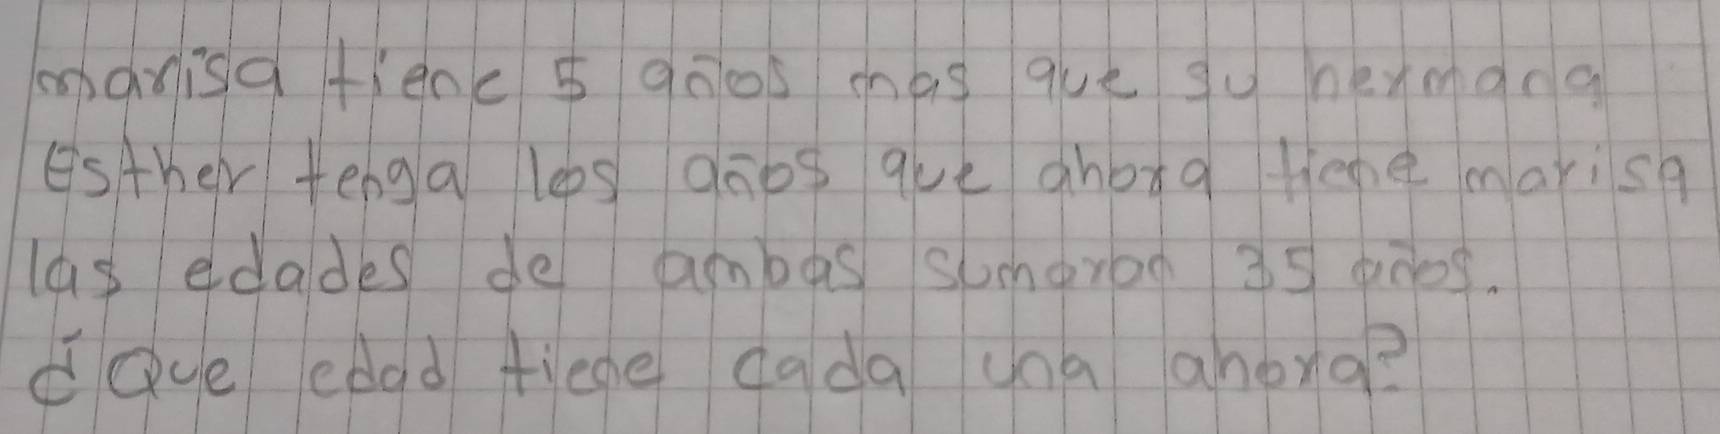 marisa tiene 5 años mas que su hermana
Esther tenga los años que ahora tiene marisa
las edades de ambas sumaran 35 años.
¿Que edad tiene cada una ahora?